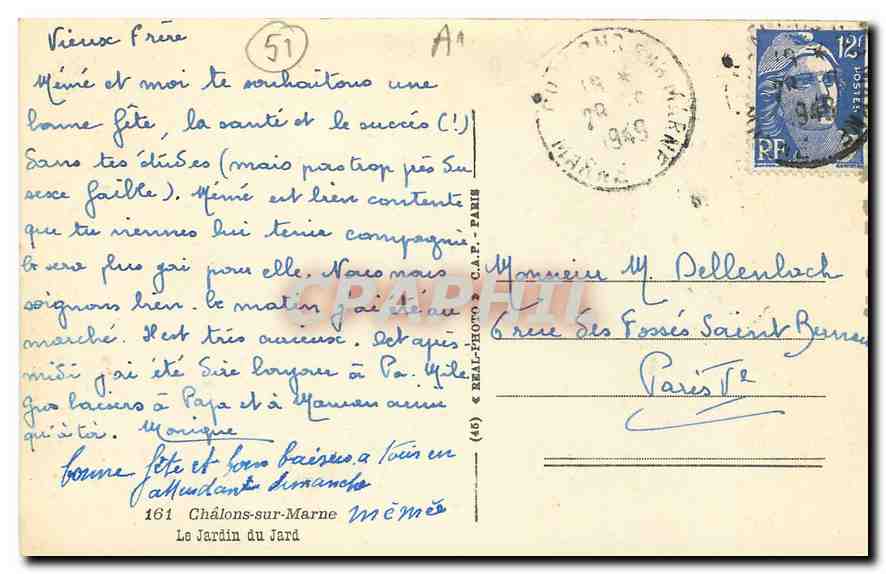 Vieux Frère
51
A1
Mémé et moi te souhaitons une
bonne fête, la santé et le succès (!)
dans tes études (mais pas trop près du
sexe faible). Mémé est bien contente
que tu viennes lui tenir compagnie
ce sera plus gai pour elle. Nous nous
soignons bien. Ce matin j'ai été au
marché. Il est très curieux. Cet après-
midi j'ai été dire bonjour à Pa.
Gros baisers à Papa et à Maman ainsi
qu'à toi. Monique
bonne fête et bons baisers a tous en
attendant dimanche
mémée
161 Châlons-sur-Marne
Le Jardin du Jard
(45) « REAL-PHOTO » C.A.P. - PARIS
CHALONS SUR MARNE
MARNE
18 *
28
1949
12F
POSTES
RF
Monsieur M. Dellenbach
6 rue des Fossés Saint Bernard
Paris Ve
CPARAMA